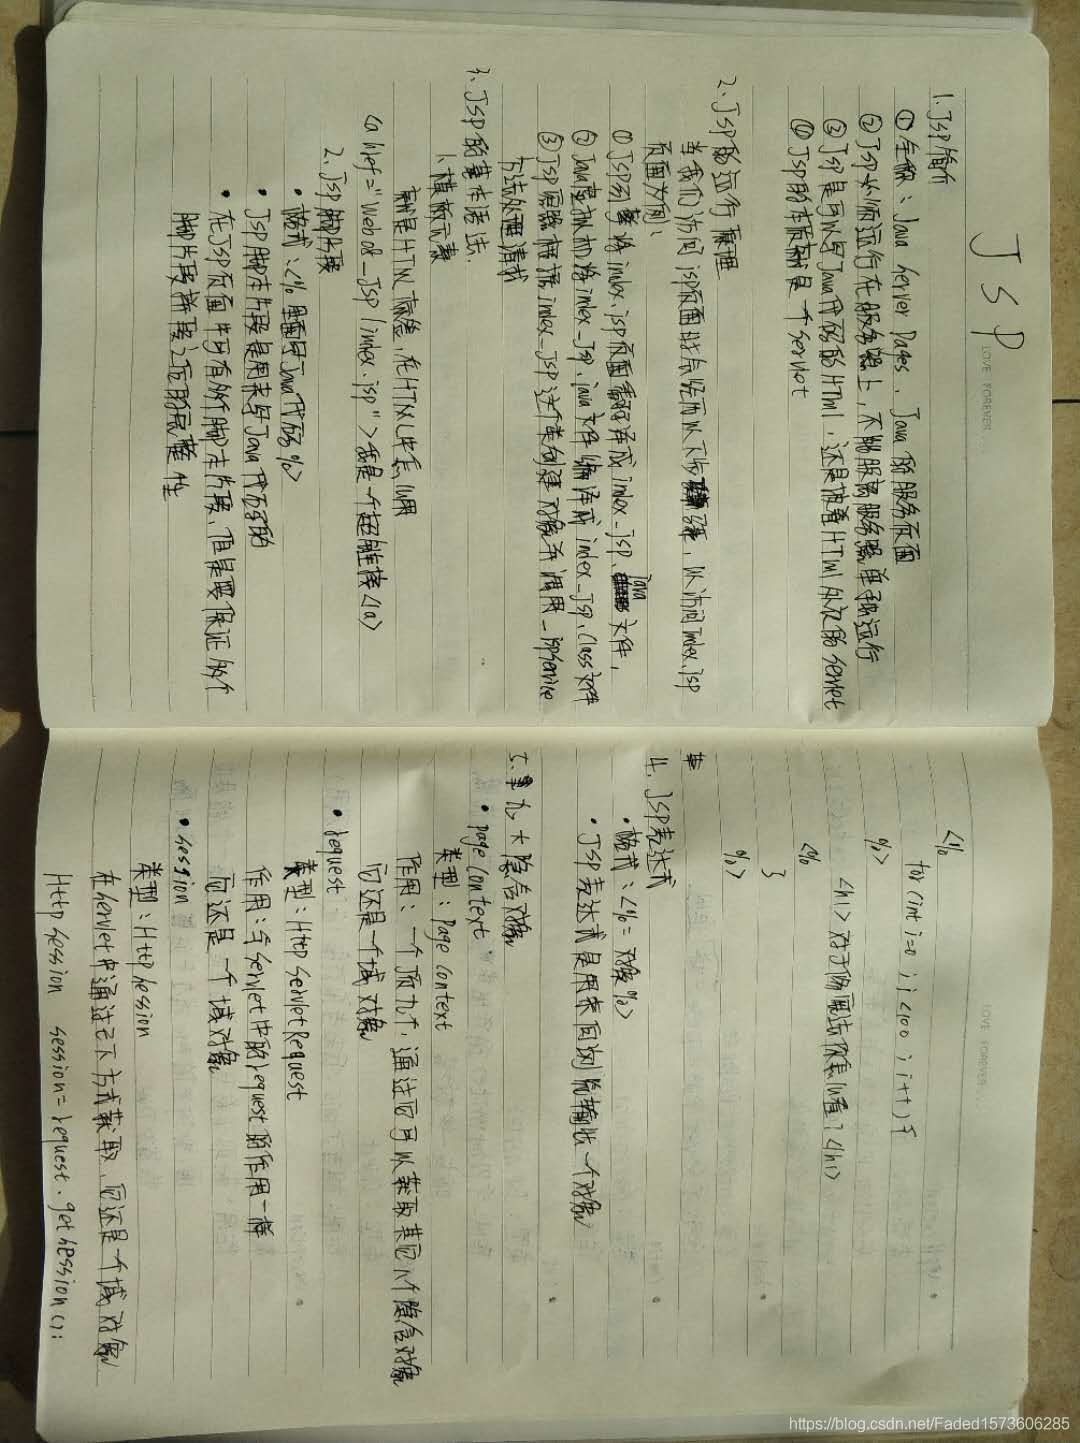 JSP
LOVE FOREVER
1. JSP简介
① 全称：Java Server Pages，Java的服务页面
② JSP必须运行在服务器上，不能脱离服务器单独运行
③ JSP是可以写Java代码的HTML，还是披着HTML外衣的Servlet
④ JSP的本质就是一个Servlet
2. JSP的运行原理
当我们访问jsp页面时会经历以下步骤，以访问Index.jsp
页面为例：
① JSP引擎将index.jsp页面翻译成index_jsp.java文件，
② Java虚拟机将index_Jsp.java文件编译成index_Jsp.Class文件
③ JSP 根据index_JSP这个类创建对象并调用_jspService
方法处理请求
3. JSP的基本语法.
1. 模板元素
就是HTML标签，在HTML中怎么用
<a href="web08_JSP/index.jsp">我是一个超链接</a>
2. JSP脚片段
• 格式：<% 里面写Java代码 %>
• JSP脚本片段是用来写Java代码的
• 在JSP页面中可有多个脚本片段，但是要保证多个
脚片段拼接之后的完整性
LOVE FOREVER
<%
for(int i=0; i<100; i++){
%>
<h1>对于 你怎么看?<h1>
<%
}
%>
4. JSP表达式
• 格式：<%= 对象 %>
• JSP表达式是用来向浏览输出一个对象
5. 九大隐含对象
• page Context
类型：Page Context
作用：一个顶九个，通过它可以获取其它八个隐含对象
它还是一个域对象
• request
类型：Http Servlet Request
作用：与Servlet中的request的作用一样
它还是一个域对象
• Session
类型：Http Session
在Servlet中通过以下方式获取，它还是一个域对象
Http Session session = request.getSession();
https://blog.csdn.net/Faded1573606285